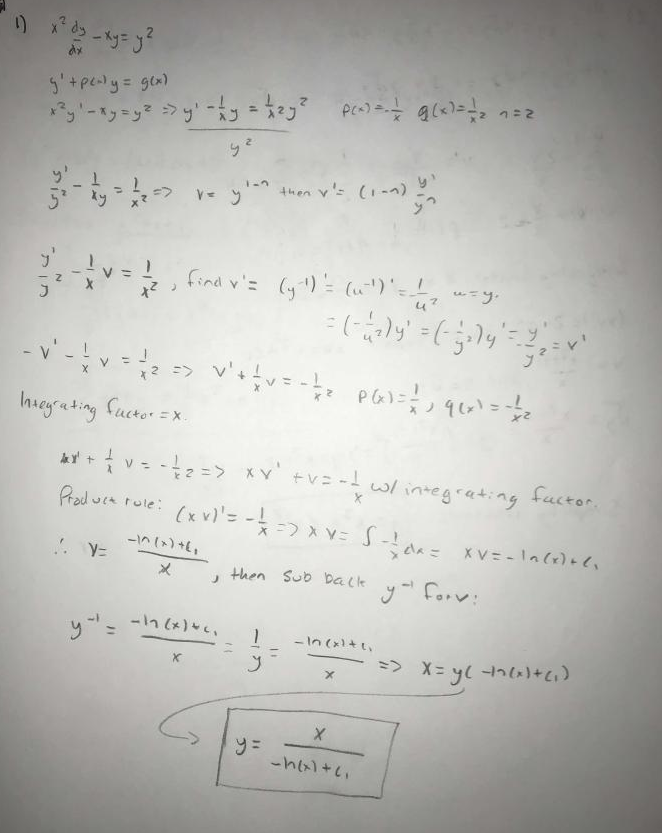 1) x² dy/dx - xy = y²
y' + p(x)y = g(x)
x²y' - xy = y² => y' - 1/x y = 1/x² y² p(x) = -1/x g(x) = 1/x² n = 2
y²
y'/y² - 1/xy = 1/x² => v = y^(1-n) then v' = (1-n) y'/yⁿ
y'/y² - 1/x v = 1/x², find v' = (y⁻¹)' = (u⁻¹)' = -1/u² u = y.
= (-1/u²)y' = (-1/y²)y' = -y'/y² = v'
-v' - 1/x v = 1/x² => v' + 1/x v = -1/x² p(x) = 1/x, q(x) = -1/x²
Integrating factor = x.
v' + 1/x v = -1/x² => xv' + v = -1/x w/ integrating factor.
Product rule: (xv)' = -1/x => xv = ∫ -1/x dx = xv = -ln(x) + c₁
∴ v = (-ln(x) + c₁)/x, then sub back y⁻¹ for v:
y⁻¹ = (-ln(x) + c₁)/x = 1/y = (-ln(x) + c₁)/x => x = y(-ln(x) + c₁)
y = x/(-ln(x) + c₁)